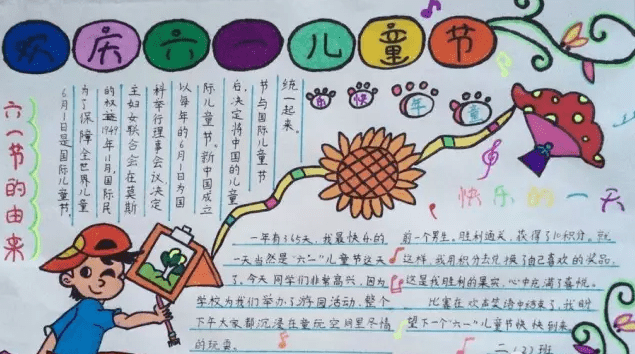 欢庆六一儿童节
六一节的由来
6月1日是国际儿童节,
为了保障全世界儿童
的权益1949年11月,国际民
主妇女联合会在莫斯
科举行理事会议决定
以每年的6月1为国
际儿童节。新中国成立
后,决定将中国的儿童
节与国际儿童节
统一起来。
乐快年童
快乐的一天
一年有365天,我最快乐的
一天当然是"六一"儿童节这天
了。今天同学们非常高兴,因为
学校为我们举办了游园活动,整个
下午大家都沉浸在童玩空间里尽情
的玩耍。
前一个男生。胜利通关,获得了10积分。就
这样,我用积分去兑换了自己喜欢的奖品,
这是我胜利的果实,心中充满了喜悦。
比赛在欢声笑语中结束了,我盼
望下一个"六一"儿童节快快到来
二.(2)班